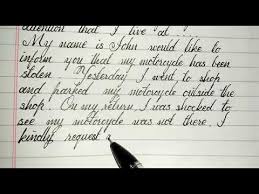 attention that I live at ....
My name is John would like to
inform you that my motorcycle has been
stolen. Yesterday I went to shop
and parked my motorcycle outside the
shop. On my return, I was shocked to
see my motorcycle was not there. I
kindly request